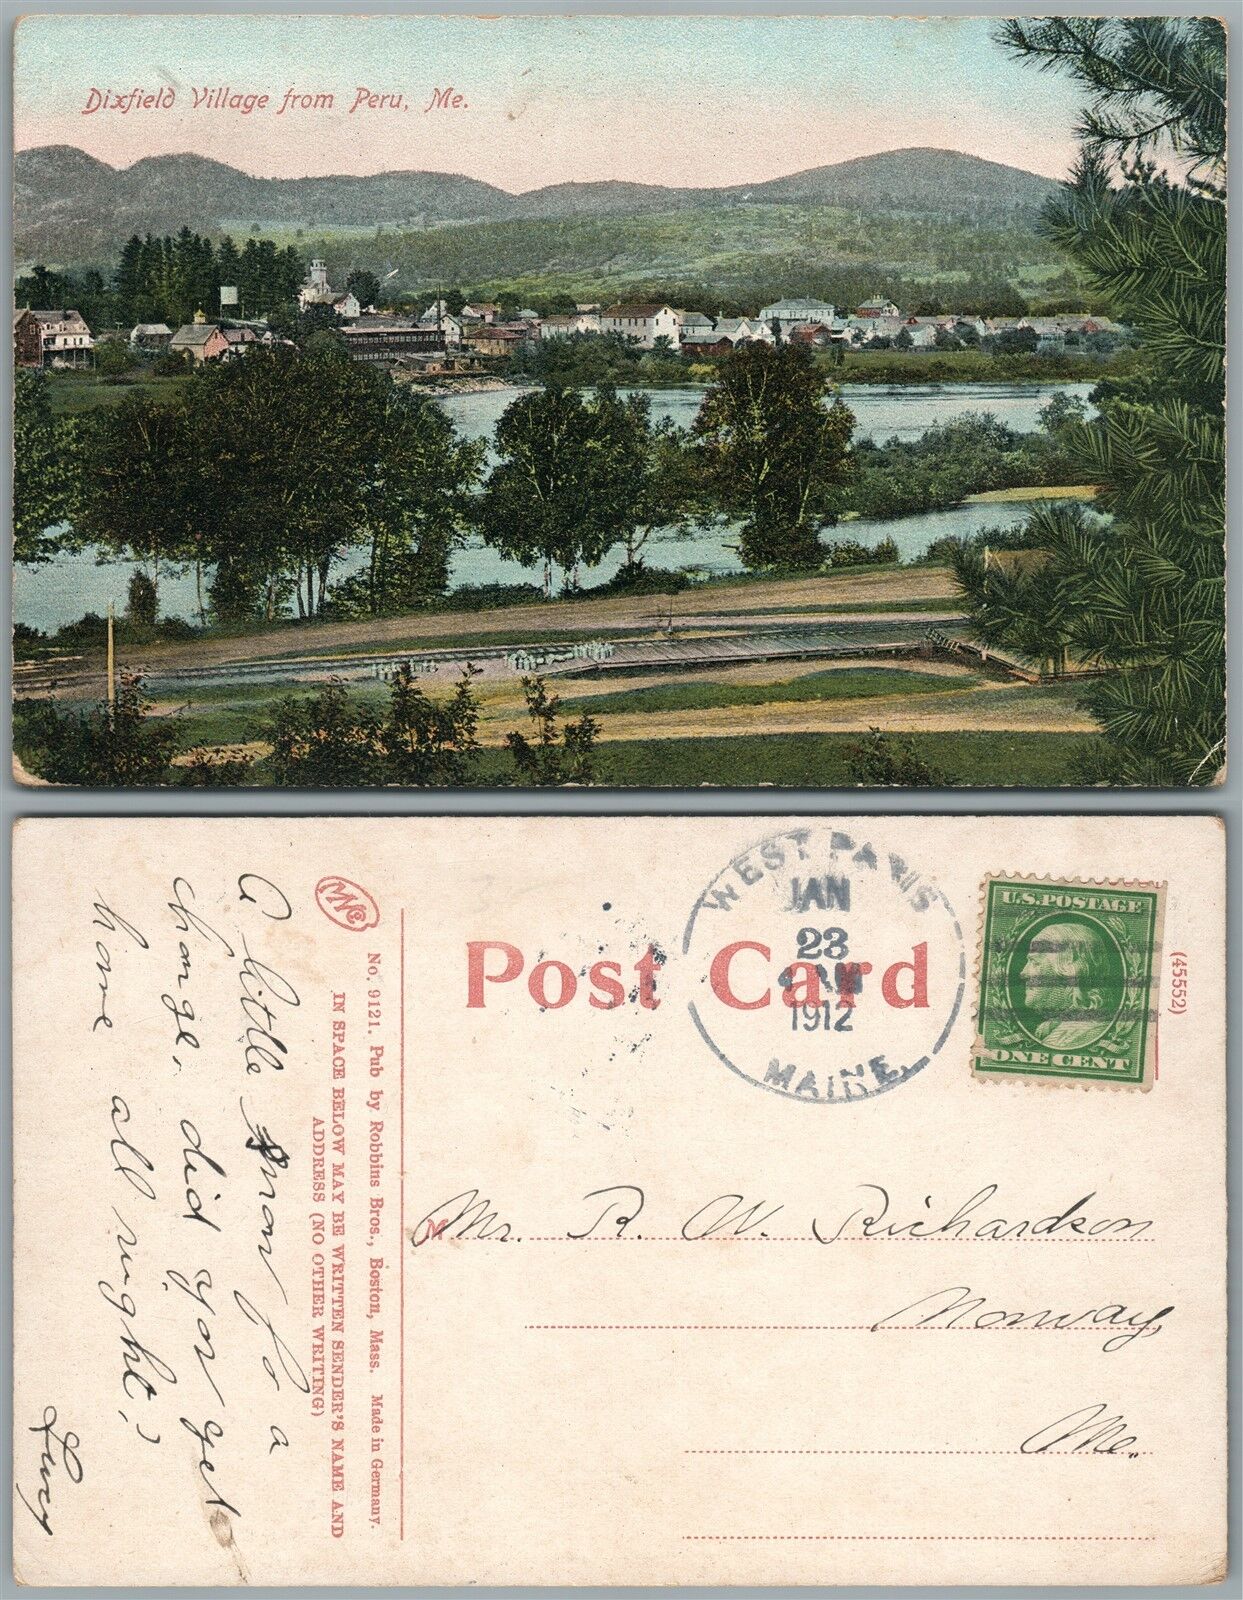 Dixfield Village from Peru, Me.
A little snow for a
change, did you get
home all right,?
Lucy
No. 9121. Pub by Robbins Bros., Boston, Mass. Made in Germany.
IN SPACE BELOW MAY BE WRITTEN SENDER'S NAME AND
ADDRESS (NO OTHER WRITING)
Post Card
WEST PARIS
JAN
23
1912
MAINE.
U.S. POSTAGE
ONE CENT
(45552)
Mr. R. W. Richardson
Norway,
Me.